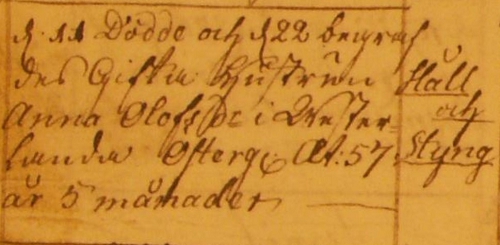 d. 11 Dödde och d 22 begraf
des Gifta Hustrun
Anna Olofsdr i Wester-
landa Österg. Æt: 57
år 5 månader
Håll
och
Styng